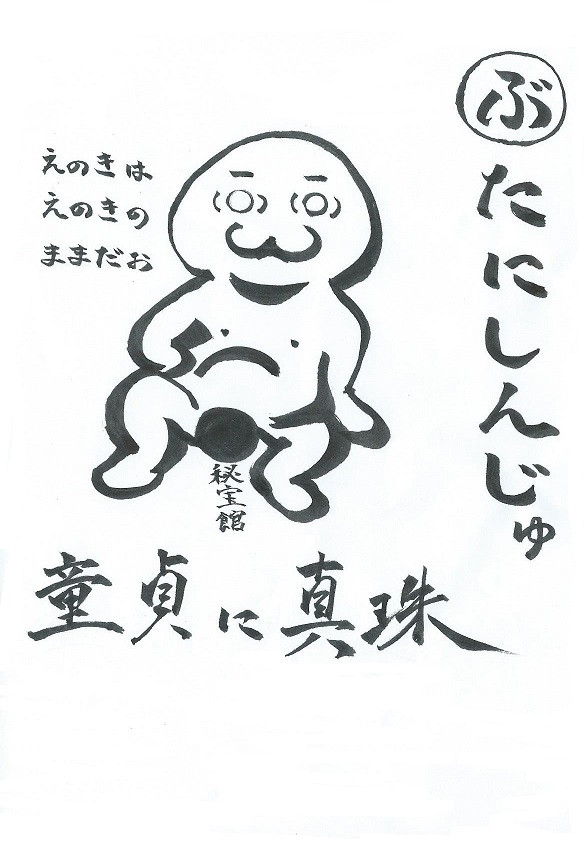 ぶたにしんじゅ
えのきは
えのきの
ままだお
秘宝館
童貞に真珠